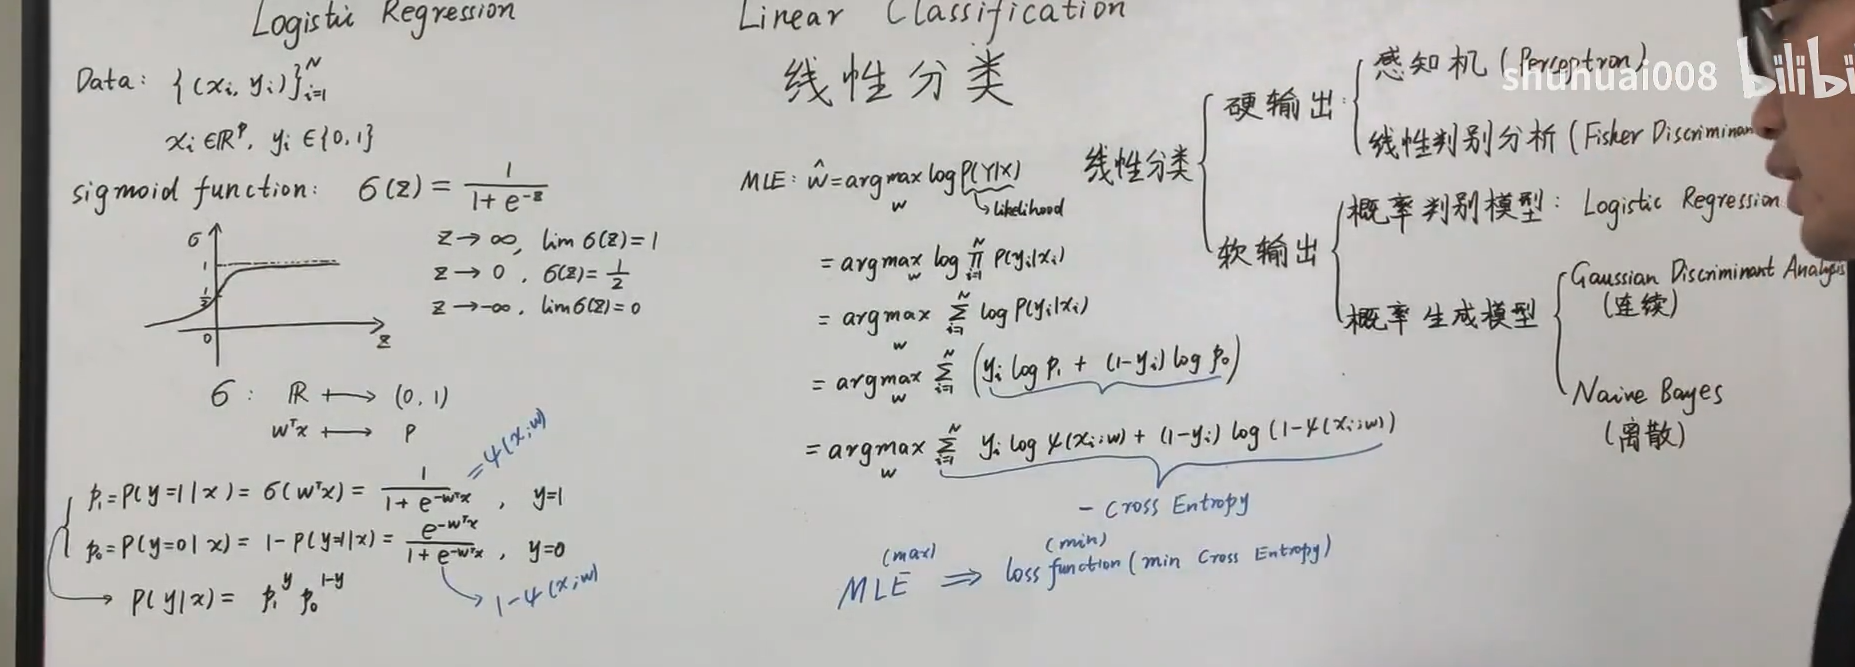 Logistic Regression
Data: {(xᵢ, yᵢ)}ᵢ₌₁ᴺ
xᵢ ∈ ℝᵖ, yᵢ ∈ {0,1}
sigmoid function: σ(z) = 1 / (1 + e^{-z})
σ
1
1/2
0
z
z → ∞, lim σ(z) = 1
z → 0, σ(z) = 1/2
z → -∞, lim σ(z) = 0
σ: ℝ ⟼ (0, 1)
wᵀx ⟼ p
p₁ = P(y=1|x) = σ(wᵀx) = 1 / (1 + e^{-wᵀx}), y=1
= ψ(x;w)
p₀ = P(y=0|x) = 1 - P(y=1|x) = e^{-wᵀx} / (1 + e^{-wᵀx}), y=0
→ 1-ψ(x;w)
→ P(y|x) = p₁^y p₀^{1-y}
Linear Classification
线性分类
MLE: ŵ = argmax_w log P(Y|X)
→ likelihood
= argmax_w log ∏ᵢ₌₁ᴺ P(yᵢ|xᵢ)
= argmax_w ∑ᵢ₌₁ᴺ log P(yᵢ|xᵢ)
= argmax_w ∑ᵢ₌₁ᴺ (yᵢ log p₁ + (1-yᵢ) log p₀)
= argmax_w ∑ᵢ₌₁ᴺ yᵢ log ψ(xᵢ;w) + (1-yᵢ) log (1-ψ(xᵢ;w))
- Cross Entropy
(max) (min)
MLE ⇒ loss function (min Cross Entropy)
线性分类
硬输出:
感知机 (Perceptron)
线性判别分析 (Fisher Discriminan
软输出
概率判别模型: Logistic Regression
概率生成模型
Gaussian Discriminant Analysis
(连续)
Naive Bayes
(离散)
shuhuai008 bilibi